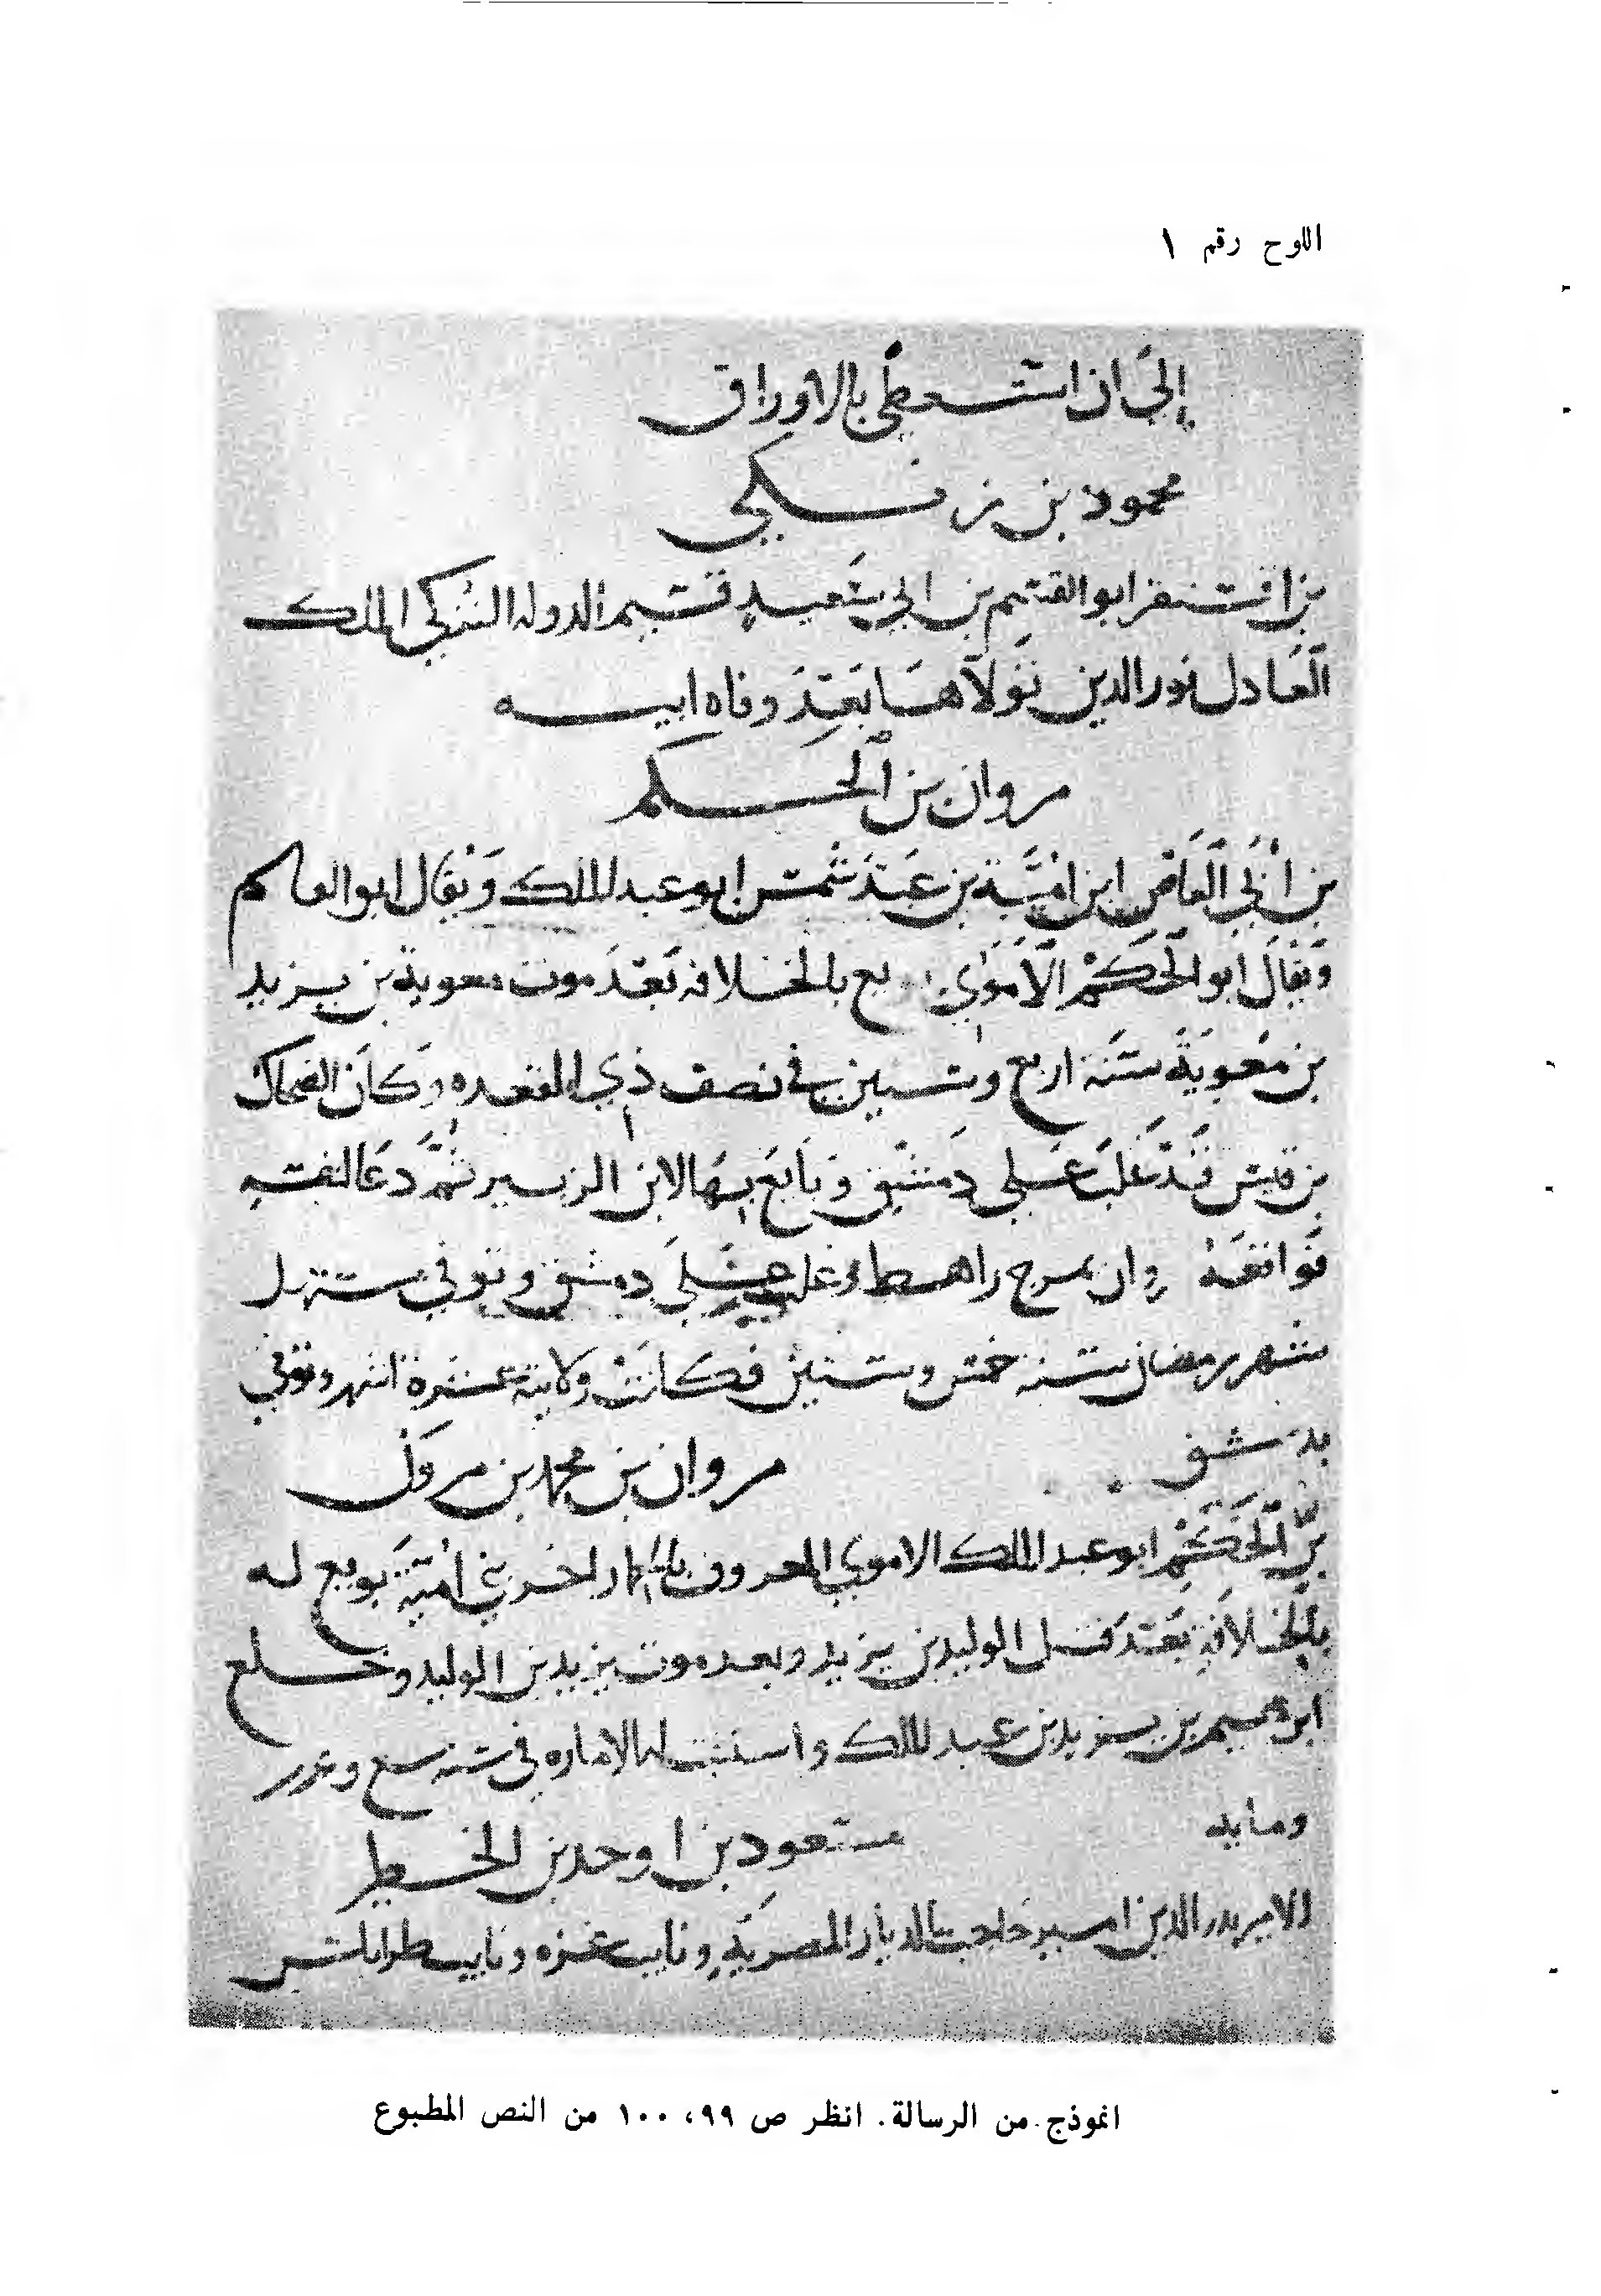 اللوح رقم ١
إلى ان استعطى بالاوراق
محمود بن زنكي
بن اقسنقر ابو القسم بن ابي سعيد قسيم الدوله التركي الملك
العادل نور الدين تولاها بعد وفاه ابيه
مروان بن الحكم
بن أبي العاص ابن امية بن عبد شمس ابو عبد الملك ويقال ابو القاسم
ويقال ابو الحكم الأموي بويع بالخلافه بعد موت معوية بن يزيد
بن معوية سنة اربع وستين في نصف ذي القعده وكان الضحاك
بن قيس قد غلب على دمشق وبايع بها لابن الزبير ثم دعا لنفسه
فواقعه مروان بمرج راهط وغلب على دمشق وتوفي مستهل
شهر رمضان سنة خمس وستين فكانت ولايته عشرة اشهر وتوفي
بدمشق
مروان بن محمد بن مروان
بن الحكم ابو عبد الملك الاموي المعروف بالحمار اخر بني امية بويع له
بالخلافة بعد قتل الوليد بن يزيد وبعد موت يزيد بن الوليد وخلع
ابرهيم بن يزيد بن عبد الملك واستتب له الاماره في سنة سبع وعشرين
ومايه
مسعود بن اوحد بن الخطير
الامير بدر الدين امير حاجب بالديار المصرية ونايب غزه ونايب طرابلس
انموذج من الرسالة. انظر ص ٩٩، ١٠٠ من النص المطبوع